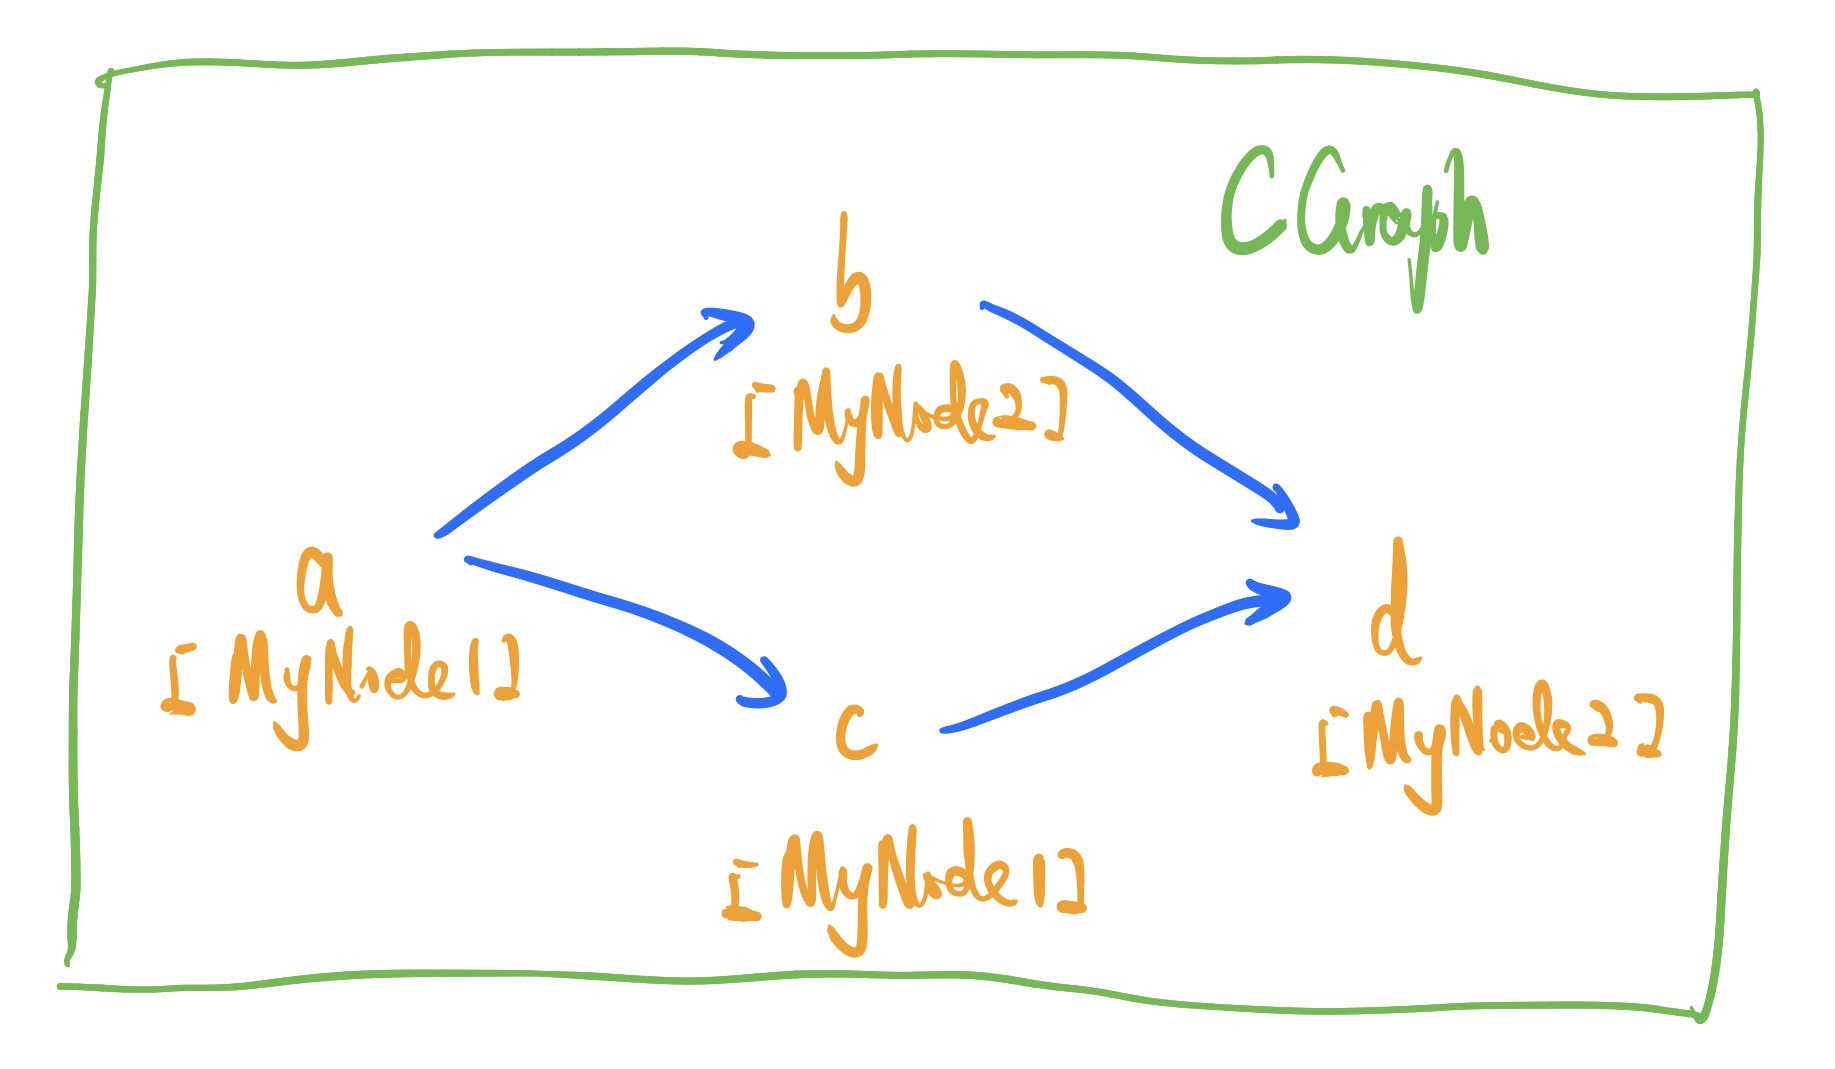 CGraph
b
[MyNode2]
a
[MyNode1]
d
[MyNode2]
c
[MyNode1]